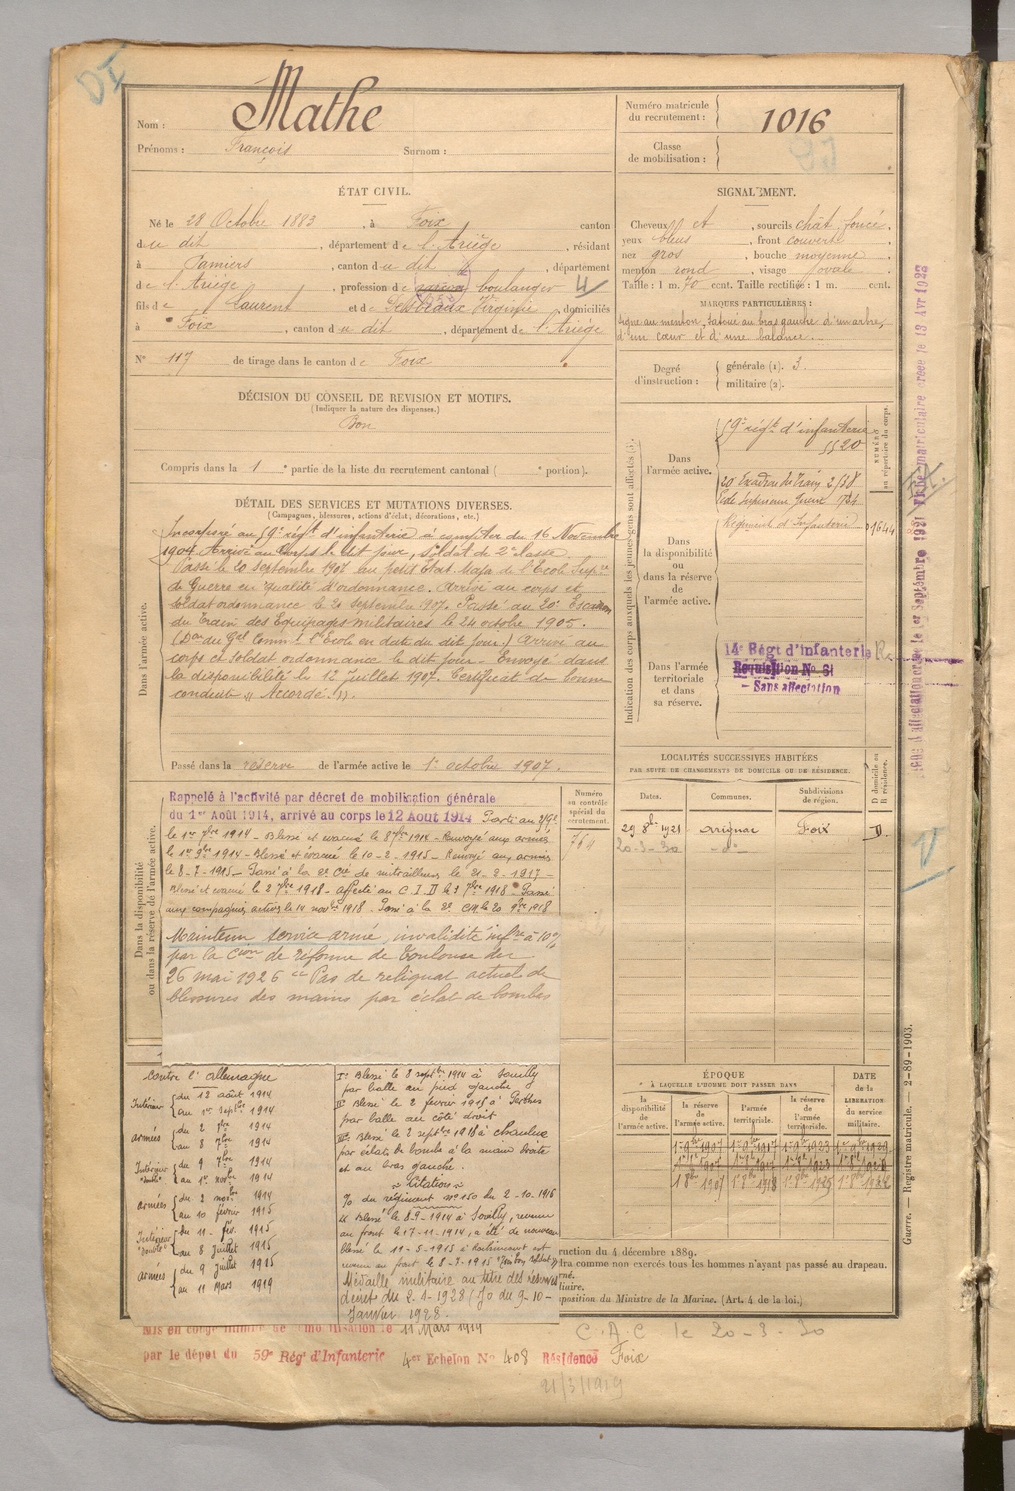 Nom : Mathe
Prénoms : François Surnom :
Numéro matricule du recrutement : 1016
Classe de mobilisation :
ÉTAT CIVIL.
Né le 28 Octobre 1883, à Foix canton
du dit, département de l'Ariège, résidant
à Pamiers, canton du dit, département
de l'Ariège, profession de boulanger
fils de Laurent et de Virginie, domiciliés
à Foix, canton du dit, département de l'Ariège
N° 117 de tirage dans le canton de Foix
DÉCISION DU CONSEIL DE REVISION ET MOTIFS.
(Indiquer la nature des dispenses.)
Bon
Compris dans la 1e partie de la liste du recrutement cantonal ( e portion).
DÉTAIL DES SERVICES ET MUTATIONS DIVERSES.
(Campagnes, blessures, actions d'éclat, décorations, etc.)
Dans l'armée active.
Incorporé au 59e régt d'infanterie à compter du 16 Novembre
1904. Arrivé au Corps le dit jour, soldat de 2e classe.
Passé le 20 septembre 1907 au petit Etat Major de l'Ecole Supre
de Guerre en qualité d'ordonnance. Arrivé au corps et
soldat ordonnance le 20 septembre 1907. Passé au 20e Escadron
du Train des Equipages militaires le 24 octobre 1905.
(Don du Gal Commt l'Ecole en date du dit jour.) Arrivé au
corps et soldat ordonnance le dit jour. Envoyé dans
la disponibilité le 12 juillet 1907. Certificat de bonne
conduite "Accordé".
Passé dans la réserve de l'armée active le 1er octobre 1907.
Dans la disponibilité ou dans la réserve de l'armée active.
Rappelé à l'activité par décret de mobilisation générale
du 1er Août 1914, arrivé au corps le 12 Août 1914
le 1er 7bre 1914 - Blessé et évacué le 8 7bre 1914 - Renvoyé aux armées
le 1er 9bre 1914 - Blessé et évacué le 10-2-1915 - Renvoyé aux armées
le 8-7-1915 - Passé à la 2e Cie de mitrailleurs le 21-2-1917 -
Blessé et évacué le 2 7bre 1918 - affecté au C.I.D le 7bre 1918 - Passé
aux compagnies actives le 14 novbre 1918. Passé à la 2e CM le 20 9bre 1918
Maintenu service armé, invalidité infre à 10%
par la Cion de réforme de Toulouse du
26 mai 1926 "Pas de reliquat actuel de
blessures des mains par éclat de bombes
Numéro au contrôle spécial du recrutement.
764
contre l'allemagne
Intérieur du 12 août 1914
au 1er Septbre 1914
armées du 2 7bre 1914
au 8 7bre 1914
Intérieur "double" du 9 7bre 1914
au 1er novbre 1914
armées du 2 novbre 1914
au 10 février 1915
Intérieur "double" du 11 fév. 1915
au 8 Juillet 1915
armées du 9 Juillet 1915
au 11 Mars 1919
I° Blessé le 8 septbre 1914 à Souilly
par balle au pied gauche.
II° Blessé le 2 février 1915 à Perthes
par balle au côté droit
III° Blessé le 2 septbre 1918 à Chaulnes
par éclats de bombe à la main droite
et au bras gauche.
Citation
Jo du régiment n° 150 du 2-10-1916
Blessé le 8-9-1914 à Souilly, revenu
au front le 17-11-1914, a été de nouveau
blessé le 11-5-1915 à est
revenu au front le 8-7-1915
Médaille militaire au titre des réserves
décret du 2-1-1928 (Jo du 9-10-
Janvier 1928.
SIGNALEMENT.
Cheveux et, sourcils chât. foncé.
yeux bleus, front couvert
nez gros, bouche moyenne
menton rond, visage ovale
Taille : 1 m. 70 cent. Taille rectifiée : 1 m. cent.
MARQUES PARTICULIÈRES :
signe au menton, tatoué au bras gauche d'un arbre,
d'un cœur et d'une balance.
Degré d'instruction : générale (1). 3.
militaire (2).
Indication des corps auxquels les jeunes gens sont affectés (3).
NUMÉRO au répertoire du corps.
Dans l'armée active.
59e régt d'infanterie
5520
20 Escadron du Train 2/58
Ecole Supérieure Guerre 754
Dans la disponibilité ou dans la réserve de l'armée active.
Régiment d'Infanterie 01644
Dans l'armée territoriale et dans sa réserve.
14e Régt d'infanterie
Réquisition No 61
- Sans affectation
LOCALITÉS SUCCESSIVES HABITÉES
PAR SUITE DE CHANGEMENTS DE DOMICILE OU DE RÉSIDENCE.
Dates. Communes. Subdivisions de région. D domicile ou R résidence.
29 8bre 1921 Arignac Foix D.
20-3-30 -d°-
ÉPOQUE
À LAQUELLE L'HOMME DOIT PASSER DANS
la disponibilité de l'armée active. la réserve de l'armée active. l'armée territoriale. la réserve de l'armée territoriale. DATE de la LIBÉRATION du service militaire.
ruction du 4 décembre 1889.
dra comme non exercés tous les hommes n'ayant pas passé au drapeau.
position du Ministre de la Marine. (Art. 4 de la loi.)
Guerre. — Registre matricule. — 2-89-1903.
le 11 Mars 1919
par le dépôt du 59e Régt d'Infanterie 4er Echelon No 408 Résidence Foix
C.A.C le 20-3-30
21/3/1919